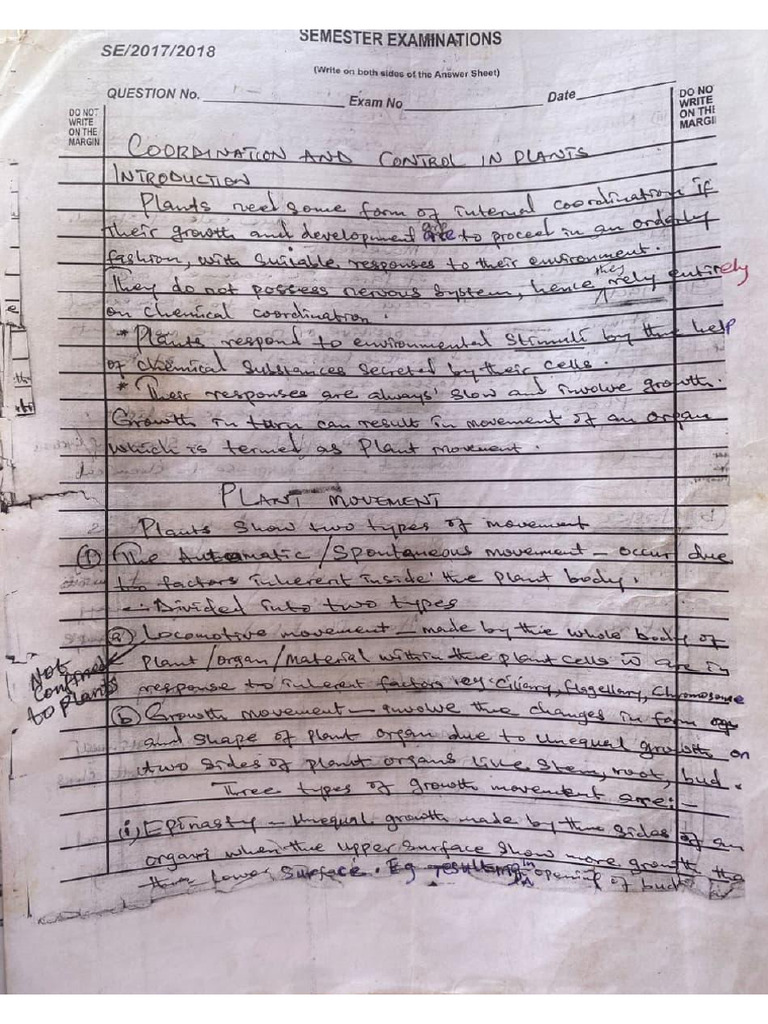 SEMESTER EXAMINATIONS
SE/2017/2018
(Write on both sides of the Answer Sheet)
QUESTION No. Exam No Date
DO NOT WRITE ON THE MARGIN
DO NO WRITE ON THE MARGI
COORDINATION AND CONTROL IN PLANTS
INTRODUCTION
Plants need some form of internal coordination if
their growth and development are to proceed in an orderly
fashion, with suitable responses to their environment.
They do not possess nervous system, hence they rely entirely
on chemical coordination.
* Plants respond to environmental stimuli by the help
of chemical substances secreted by their cells.
* Their responses are always slow and involve growth.
Growth in turn can result in movement of an organ
which is termed as Plant movement.
PLANT MOVEMENT
Plants show two types of movement
(1) The Automatic/Spontaneous movement - occur due
to factors inherent inside the plant body.
- Divided into two types
(a) Locomotive movement - made by the whole body of
Plant/organ/Material within the plant cells are in
response to inherent factors eg. Ciliary, flagellary, Chromosome
Not Confined to plants
(b) Growth movement - involve the changes in form
and shape of plant organ due to unequal growth on
two sides of plant organs like stem, root, bud.
Three types of growth movement are:-
(i) Epinasty - unequal growth made by the sides of an
organ when the upper surface show more growth
than lower surface. Eg resulting in opening of bud